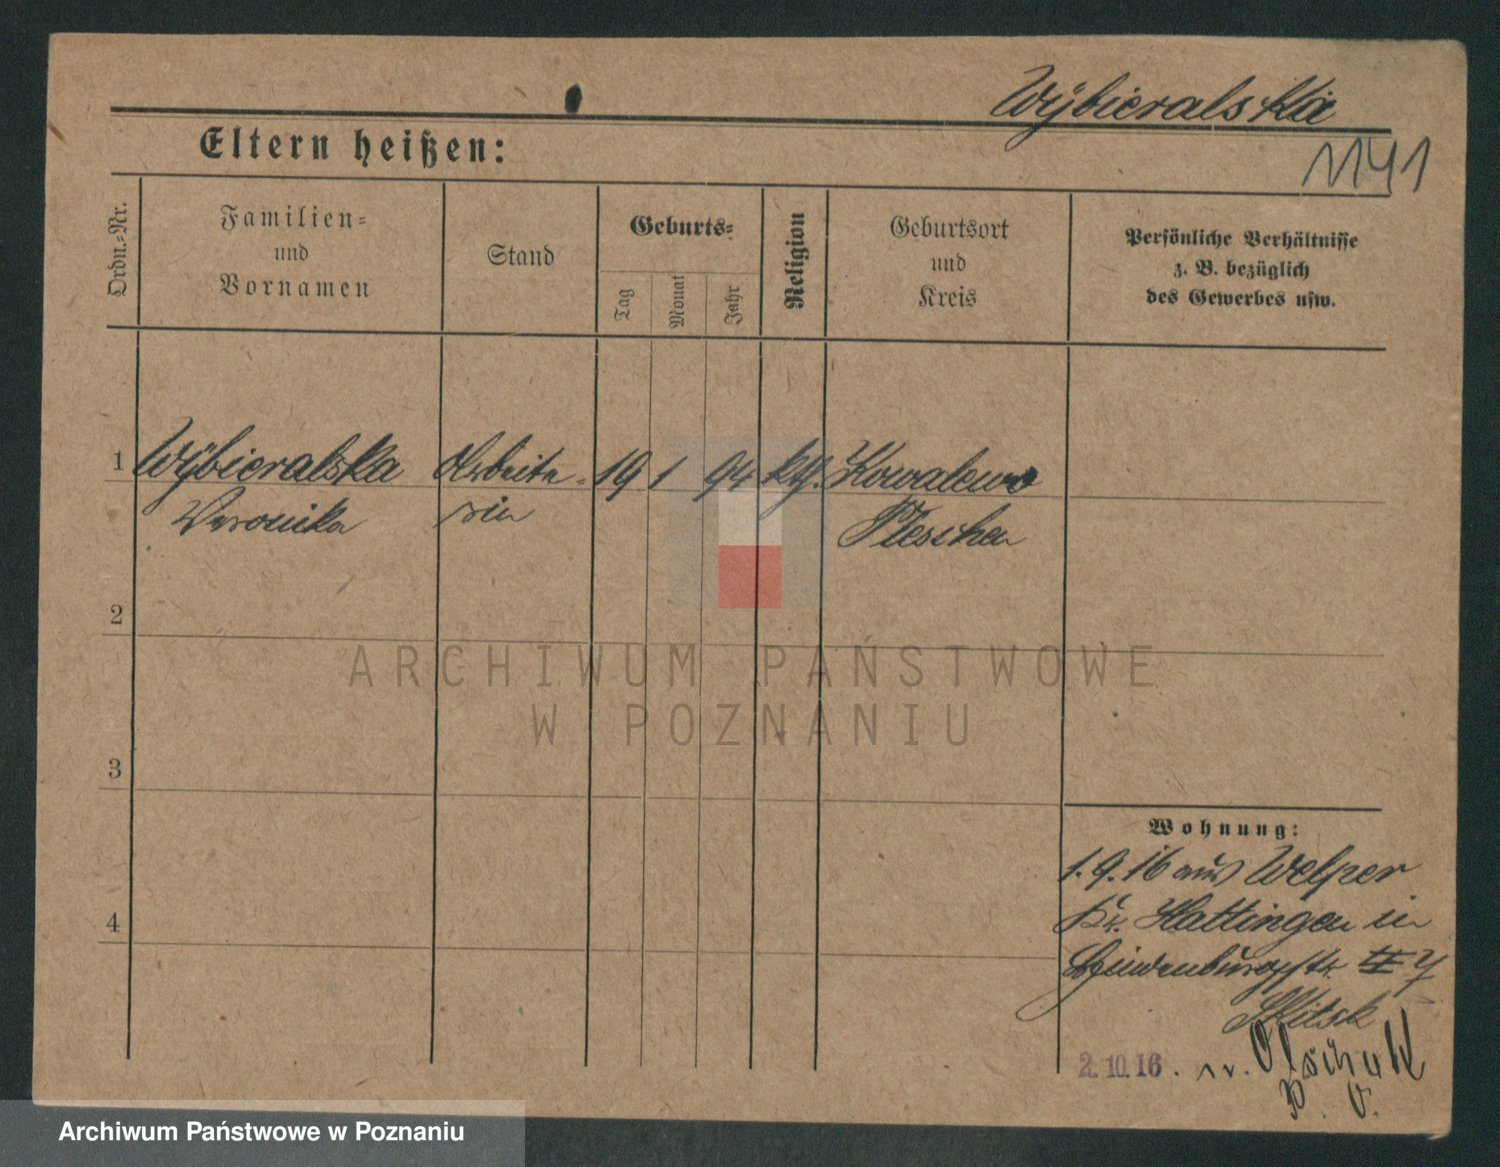 Wybieralska
1141
Eltern heißen:
Ordn.-Nr.
Familien-
und
Vornamen
Stand
Geburts-
Tag
Monat
Jahr
Religion
Geburtsort
und
Kreis
Persönliche Verhältnisse
z. B. bezüglich
des Gewerbes usw.
1 Wybieralska Arbeite- 19 1 94 kth. Kowalewo
Veronika rin Pleschen
2
ARCHIWUM PAŃSTWOWE
W POZNANIU
3
Wohnung:
1.9.16 aus Welper
Kr. Hattingen in
4
2.10.16. n.
Archiwum Państwowe w Poznaniu